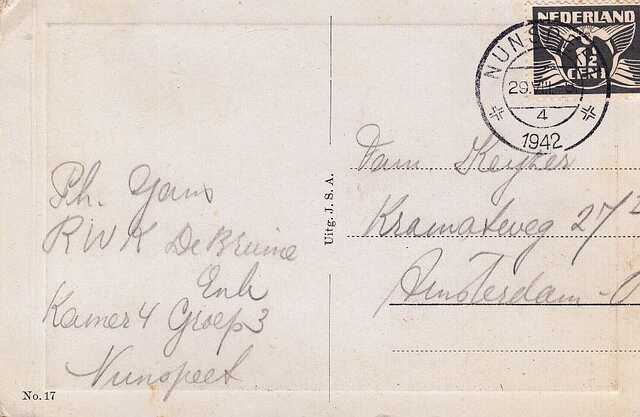 NEDERLAND
1½
CENT
NUNSPEET
29.VIII
4
1942
Fam. Keyzer
Kramatweg 27
Amsterdam-O
Uitg. J. S. A.
Ph.
RWK De Bruine
Enk
Kamer 4 Groep 3
Nunspeet
No. 17